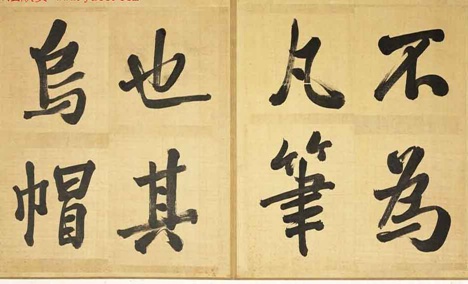 不為
凡筆
也其
烏帽